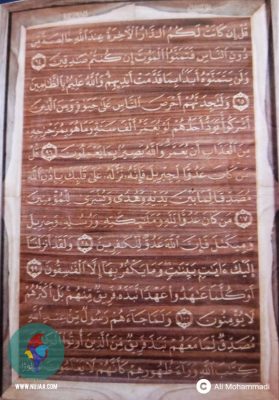 قُلْ إِن كَانَتْ لَكُمُ الدَّارُ الْآخِرَةُ عِندَ اللَّهِ خَالِصَةً مِّن
دُونِ النَّاسِ فَتَمَنَّوُا الْمَوْتَ إِن كُنتُمْ صَٰدِقِينَ ٩٤
وَلَن يَتَمَنَّوْهُ أَبَدًا بِمَا قَدَّمَتْ أَيْدِيهِمْ وَاللَّهُ عَلِيمٌ بِالظَّٰلِمِينَ
٩٥ وَلَتَجِدَنَّهُمْ أَحْرَصَ النَّاسِ عَلَىٰ حَيَوٰةٍ وَمِنَ الَّذِينَ
أَشْرَكُوا يَوَدُّ أَحَدُهُمْ لَوْ يُعَمَّرُ أَلْفَ سَنَةٍ وَمَا هُوَ بِمُزَحْزِحِهِ
مِنَ الْعَذَابِ أَن يُعَمَّرَ وَاللَّهُ بَصِيرٌ بِمَا يَعْمَلُونَ ٩٦
قُلْ مَن كَانَ عَدُوًّا لِّجِبْرِيلَ فَإِنَّهُ نَزَّلَهُ عَلَىٰ قَلْبِكَ بِإِذْنِ اللَّهِ
مُصَدِّقًا لِّمَا بَيْنَ يَدَيْهِ وَهُدًى وَبُشْرَىٰ لِلْمُؤْمِنِينَ
٩٧ مَن كَانَ عَدُوًّا لِّلَّهِ وَمَلَٰئِكَتِهِ وَرُسُلِهِ وَجِبْرِيلَ
وَمِيكَىٰلَ فَإِنَّ اللَّهَ عَدُوٌّ لِّلْكَٰفِرِينَ ٩٨ وَلَقَدْ أَنزَلْنَا
إِلَيْكَ ءَايَٰتٍ بَيِّنَٰتٍ وَمَا يَكْفُرُ بِهَا إِلَّا الْفَٰسِقُونَ ٩٩
أَوَكُلَّمَا عَٰهَدُوا عَهْدًا نَّبَذَهُ فَرِيقٌ مِّنْهُم بَلْ أَكْثَرُهُمْ
لَا يُؤْمِنُونَ ١٠٠ وَلَمَّا جَاءَهُمْ رَسُولٌ مِّنْ عِندِ اللَّهِ
مُصَدِّقٌ لِّمَا مَعَهُمْ نَبَذَ فَرِيقٌ مِّنَ الَّذِينَ أُوتُوا
كِتَٰبَ اللَّهِ وَرَاءَ ظُهُورِهِمْ كَأَنَّهُمْ لَا
WWW.NUJAR.COM
C Ali Mohammadi